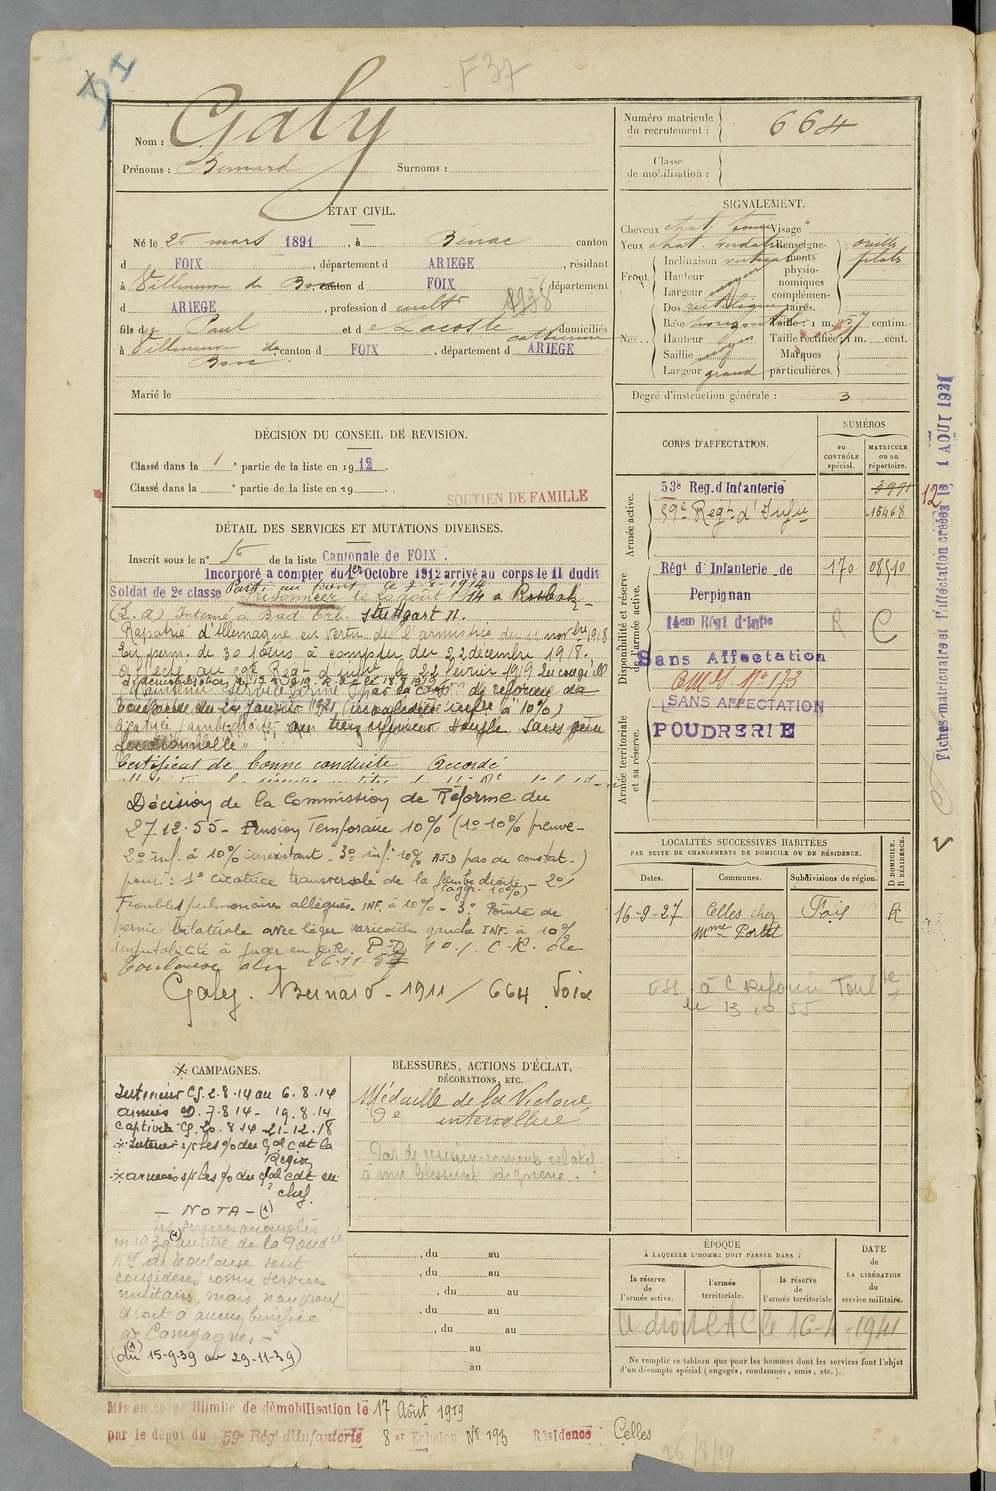 F 37
Galy
Nom :
Prénoms : Bernard Surnoms :
Numéro matricule du recrutement : 664
Classe de mobilisation :
ÉTAT CIVIL.
Né le 26 mars 1891, à Bénac canton
d FOIX, département d ARIEGE, résidant
à Villeneuve du Bosc canton d FOIX département
d ARIEGE, profession de cult
fils de Paul et de Lacoste Catherine domiciliés
à Villeneuve du Bosc canton d FOIX, département d ARIEGE
Marié le
SIGNALEMENT.
Cheveux chat. foncé Visage
Yeux chat. verdâtre Renseigne-
Inclinaison verticale ments
Front. Hauteur physio-
Largeur moyen nomiques
complémen-
Dos rectiligne taires.
oreilles
plates
Base horizontale Taille : 1 m. 57 centim.
Nez Hauteur moyen Taille rectifiée : 1 m. cent.
Saillie moyen Marques
Largeur grand particulières.
Degré d'instruction générale : 3
DÉCISION DU CONSEIL DE REVISION.
Classé dans la 1e partie de la liste en 1912
Classé dans la e partie de la liste en 19
SOUTIEN DE FAMILLE
DÉTAIL DES SERVICES ET MUTATIONS DIVERSES.
Inscrit sous le n° 16 de la liste Cantonale de FOIX.
Incorporé a compter du 1er Octobre 1912 arrivé au corps le 11 dudit
Soldat de 2e classe Parti au front
Prisonnier le 20 août 1914 à Rorbak
Interné à Bad Stuttgart II.
Rapatrié d'Allemagne en vertu de l'armistice du 11 nov bre 1918
En perm. de 30 jours à compter du 22 décembre 1918.
Affecté au 59e Régt d'infie le 22 février 1919
Maintenu service armé par la Com de réforme de
Toulouse du 24 Janvier 1921, invalidité infre à 10%
cicatrice jambe droite, au tiers inférieur souple sans gêne
fonctionnelle"
Certificat de bonne conduite Accordé
CORPS D'AFFECTATION.
NUMÉROS
au CONTRÔLE spécial.
MATRICULE ou au répertoire.
Armée active.
53e Reg. d'Infanterie 3991
59e Regt d'Infie 15468
Disponibilité et réserve de l'armée active.
Régt d'Infanterie de Perpignan 170 08510
14em Régt d'Infie R C
Sans Affectation
SANS AFFECTATION
POUDRERIE
Armée territoriale et sa réserve.
12
Fiches matriculaire et d'affectation créées le 1 AOUT 1921
Décision de la Commission de Réforme du
27-12-55 - Pension Temporaire 10% (1° 10% preuve -
2° inf. à 10% inexistant - 3° inf. 10% AJD pas de constat.)
pour : 1° cicatrice transversale de la jambe droite (aggr. 10%) - 2°
Troubles pulmonaires allégués. INF. à 10% - 3° Pointe de
hernie bilatérale avec léger varicocèle gauche INF. à 10%
imputabilité à juger en C.R. P.D. 10 % C.R. de
Toulouse du 26.11.57
Galy - Bernard - 1911 / 664 Foix
LOCALITÉS SUCCESSIVES HABITÉES
PAR SUITE DE CHANGEMENTS DE DOMICILE OU DE RÉSIDENCE.
Dates. Communes. Subdivisions de région. D DOMICILE. R RÉSIDENCE.
16-9-27 Celles chez Mme Portet Foix R
à C Réforme Toul
le 13 10 55
CAMPAGNES.
Intérieur CS. 2.8.14 au 6.8.14
armées CD. 7.8.14 - 19.8.14
Captivité CS. 20.8.14 - 21-12.18
* Intérieur s/s les o/ du Gal Cdt la Région
* armées s/s les o/ du Gal Cdt en chef.
- NOTA - (1)
Les services accomplis
en 1939 (1) au titre de la Poudrie
Nle de Toulouse sont
considérés comme services
militaires, mais n'ouvrent
droit à aucun bénéfice
de Campagne. -
(1) (du 15-9-39 au 29-11-39)
BLESSURES, ACTIONS D'ÉCLAT,
DÉCORATIONS, ETC.
Médaille de la Victoire
de interalliée
Pas de renseignements relatifs
à une blessure de guerre.
, du au
, du au
, du au
, du au
, du au
au
au
ÉPOQUE
À LAQUELLE L'HOMME DOIT PASSER DANS :
la réserve de l'armée active. l'armée territoriale. la réserve de l'armée territoriale
DATE de LA LIBÉRATION du service militaire.
A droit CAC le 16-4-1941
Ne remplir ce tableau que pour les hommes dont les services font l'objet
d'un décompte spécial (engagés, condamnés, omis, etc.).
Mis en congé illimité de démobilisation le 17 Août 1919
par le dépôt du 59e Rég d'Infanterie 8 er Echelon No 193 Résidence : Celles
26/8/19